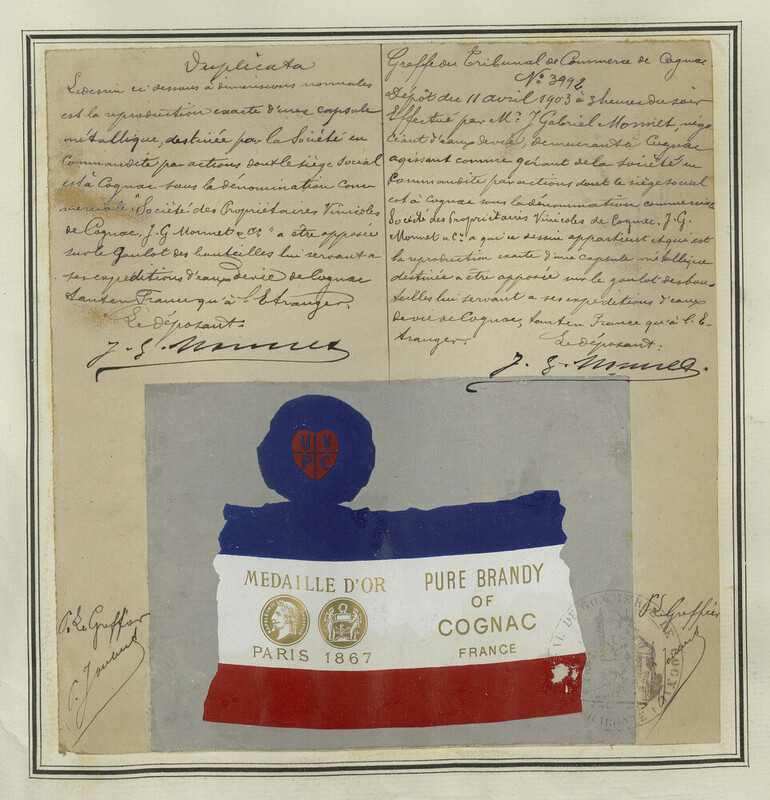 Duplicata
Le dessin ci dessous à dimensions normales
est la reproduction exacte d'une capsule
métallique, destinée par la Société en
Commandite par actions dont le siège social
est à Cognac sous la dénomination Com-
merciale "Société des Propriétaires Vinicoles
de Cognac, J. G. Monnet & Cie" a être apposée
sur le Goulot des bouteilles lui servant a
ses expéditions d'eaux de vie de Cognac
tant en France qu'à l'Etranger.
Le déposant.
J. G. Monnet
Greffe du Tribunal de Commerce de Cognac
No 3992
Dépôt du 11 avril 1903 à 3 heures du soir
Effectué par Mr. J Gabriel Monnet, négo
ciant d'eaux de vie, demeurant à Cognac
agissant comme gérant de la société en
Commandite par actions dont le siège social
est à Cognac sous la dénomination commerciale
Société des Propriétaires Vinicoles de Cognac, J. G.
Monnet & Cie a qui ce dessin appartient et qui est
la reproduction exacte d'une capsule métallique
destinée a être apposée sur le goulot des bou-
teilles lui servant a ses expéditions d'eaux
de vie de Cognac, tant en France qu'à l'E-
tranger.
Le déposant:
J. G. Monnet.
U V
P C
MEDAILLE D'OR
PARIS 1867
PURE BRANDY
OF
COGNAC
FRANCE
P. Le Greffier
P. Le Greffier